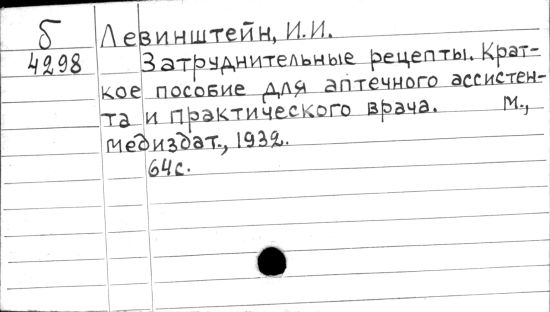 Б Левинштейн, И.И.
4298 Затруднительные рецепты. Крат-
кое пособие для аптечного ассистен-
та и практического врача. М.,
Медиздат., 1932.
64с.